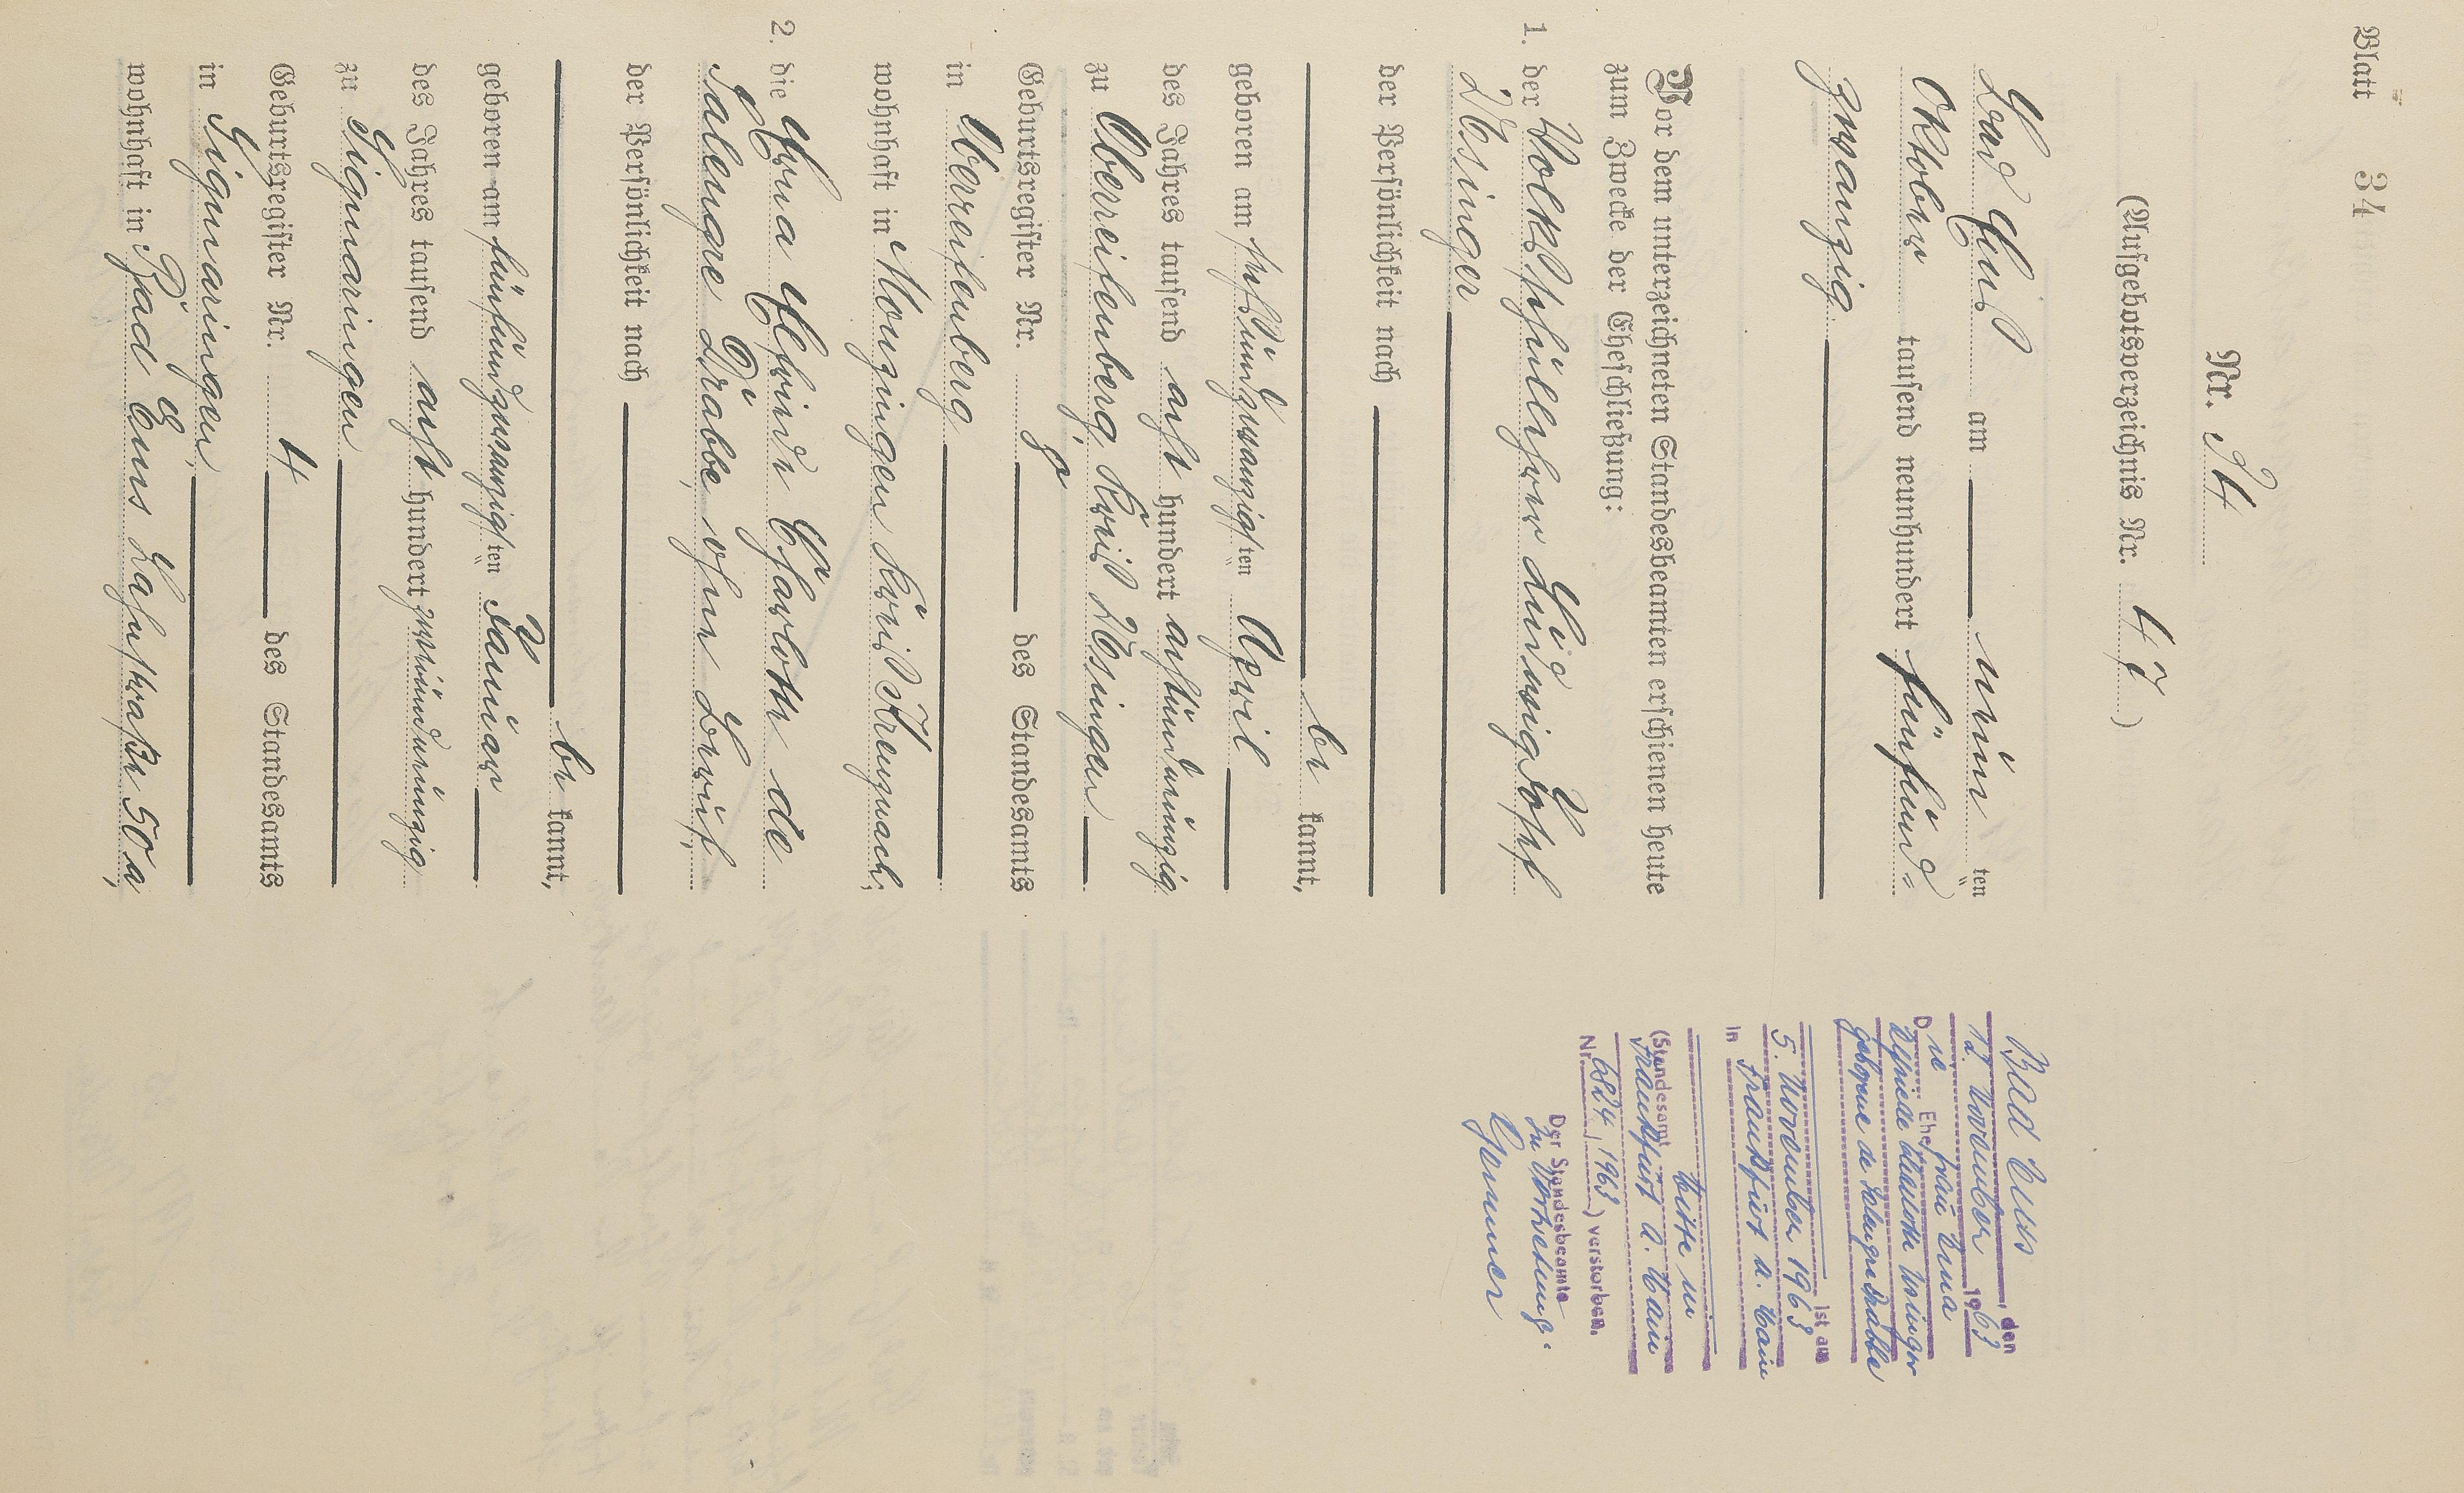 Blatt 34
Nr. 34
(Aufgebotsverzeichnis Nr. 47)
Bad Ems am — neun ten
Oktober tausend neunhundert fünfund=
zwanzig.
Vor dem unterzeichneten Standesbeamten erschienen heute
zum Zwecke der Eheschließung:
1. der Volksschullehrer Ludwig Josef
Usinger
der Persönlichkeit nach
be kannt,
geboren am sechsundzwanzigsten April
des Jahres tausend acht hundert achtundneunzig
zu Oberreifenberg, Kreis Usingen
Geburtsregister Nr. 9 des Standesamts
in Oberreifenberg
wohnhaft in Monzingen Kreis Kreuznach;
2. die Erna Elfriede Charlotte de
Salengre Drabbe, ohne Beruf,
der Persönlichkeit nach
be kannt,
geboren am fünfundzwanzigsten Januar
des Jahres tausend acht hundert zweiundneunzig
zu Sigmaringen
Geburtsregister Nr. 4 des Standesamts
in Sigmaringen,
wohnhaft in Bad Ems Lahnstraße 50 a,
Bad Ems, den
12. November 1963
Die Ehefrau Erna
Elfriede Charlotte Usinger
geborene de Salengre Drabbe
ist am
5. November 1963
in Frankfurt a. Main
Mitte in
(Standesamt Frankfurt a. Main
Nr. 6824 / 1963) verstorben.
Der Standesbeamte
In Vertretung: